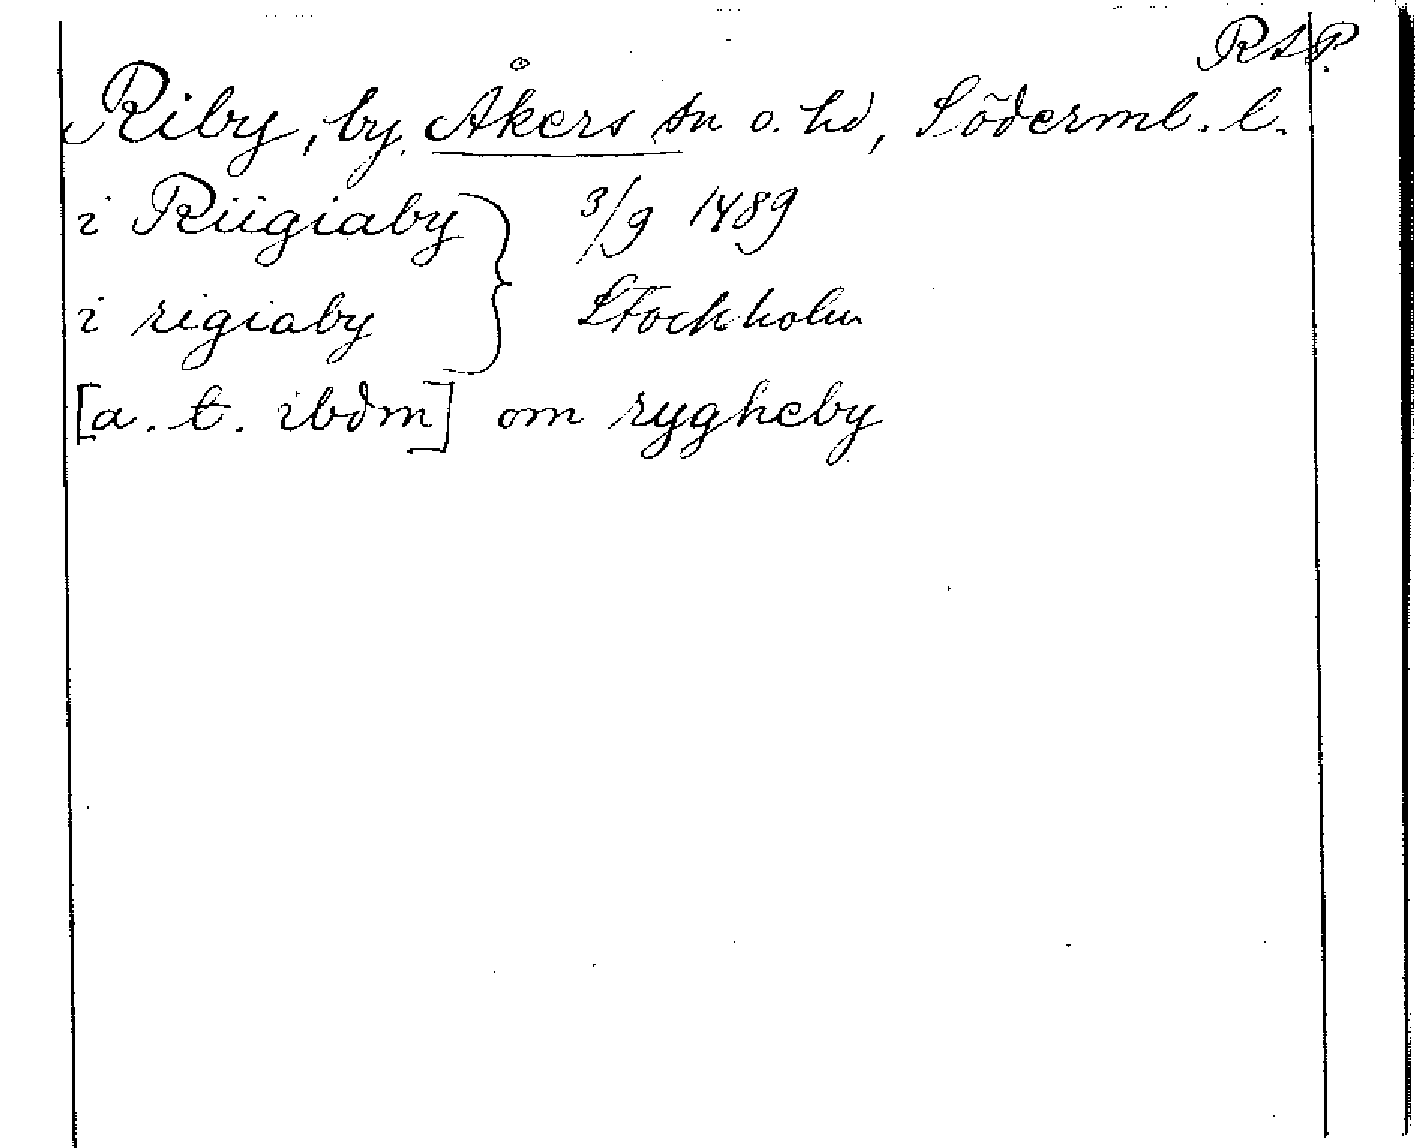 RAP.
Riby, by, Åkers sn o. hd, Söderml. l.
i Riigiaby } 3/9 1489
i rigiaby } Stockholm
[a. t. ibdm] om rygheby